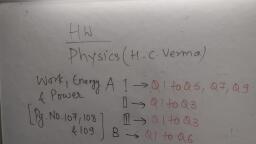 HW
Physics (H.C. Verma)
Work, Energy A I → Q1 to Q5, Q7, Q9
& Power II → Q1 to Q3
[Pg. No. 107, 108 III → Q1 to Q3
& 109] B → Q1 to Q6